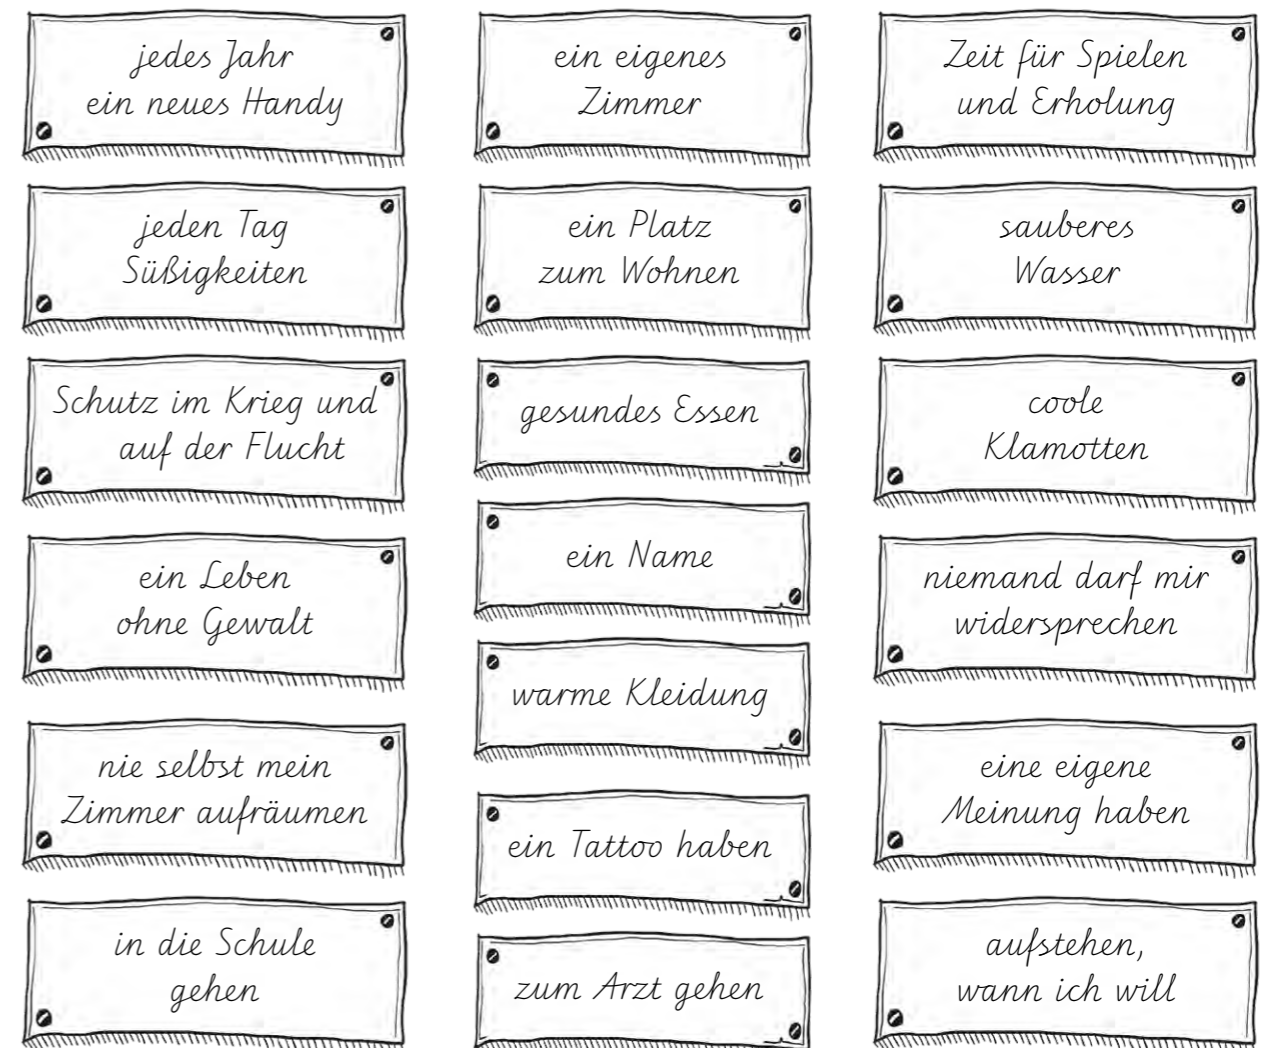 jedes Jahr
ein neues Handy
jeden Tag
Süßigkeiten
Schutz im Krieg und
auf der Flucht
ein Leben
ohne Gewalt
nie selbst mein
Zimmer aufräumen
in die Schule
gehen
ein eigenes
Zimmer
ein Platz
zum Wohnen
gesundes Essen
ein Name
warme Kleidung
ein Tattoo haben
zum Arzt gehen
Zeit für Spielen
und Erholung
sauberes
Wasser
coole
Klamotten
niemand darf mir
widersprechen
eine eigene
Meinung haben
aufstehen,
wann ich will